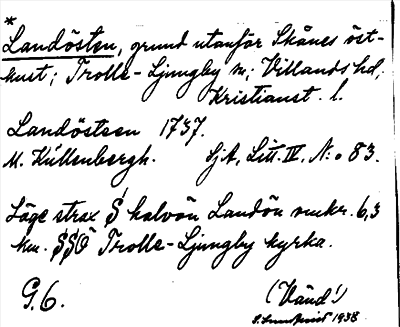 *
Landösten, grund utanför Skånes öst-
kust; Trolle-Ljungby sn; Villands hd.
Kristianst. l.
Landösteen 1737.
M. Küllenbergh. SjA, Litt. IV, N:o 83.
Läge strax S halvön Landön omkr. 6,3
km. SSÖ Trolle-Ljungby kyrka.
G.6. (Vänd!)
1938